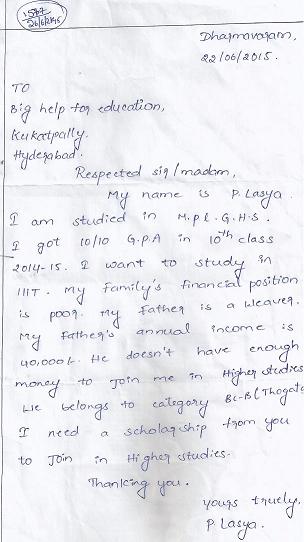 1587
26/6/2015
Dharmavaram,
22/06/2015.
TO
Big help for education,
Kukatpally.
Hyderabad.
Respected sir/madam,
My name is P. Lasya.
I am studied in M.P.L.G.H.S.
I got 10/10 G.P.A in 10th class
2014-15. I want to study in
IIIT. My family's financial position
is poor. My Father is a weaver.
My Father's annual income is
40,000/-. He doesn't have enough
money to join me in Higher studies
We belongs to category BC-B (Thogata
I need a scholarship from you
to Join in Higher studies.
Thanking you.
yours truely,
P. Lasya.